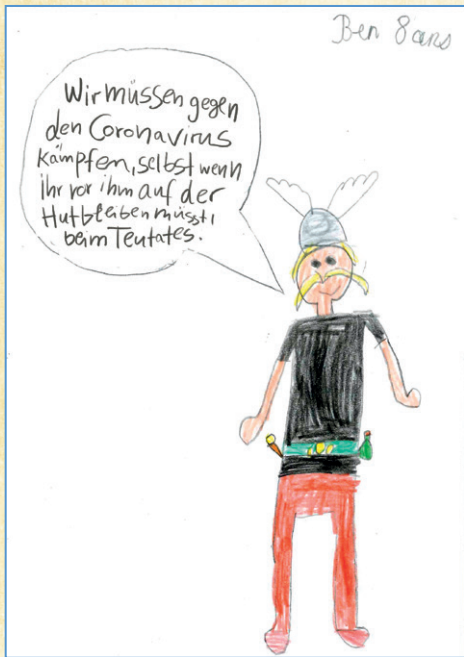 Ben 8 ans
Wir müssen gegen
den Coronavirus
kämpfen, selbst wenn
ihr vor ihm auf der
Hut bleiben müsst,
beim Teutates.